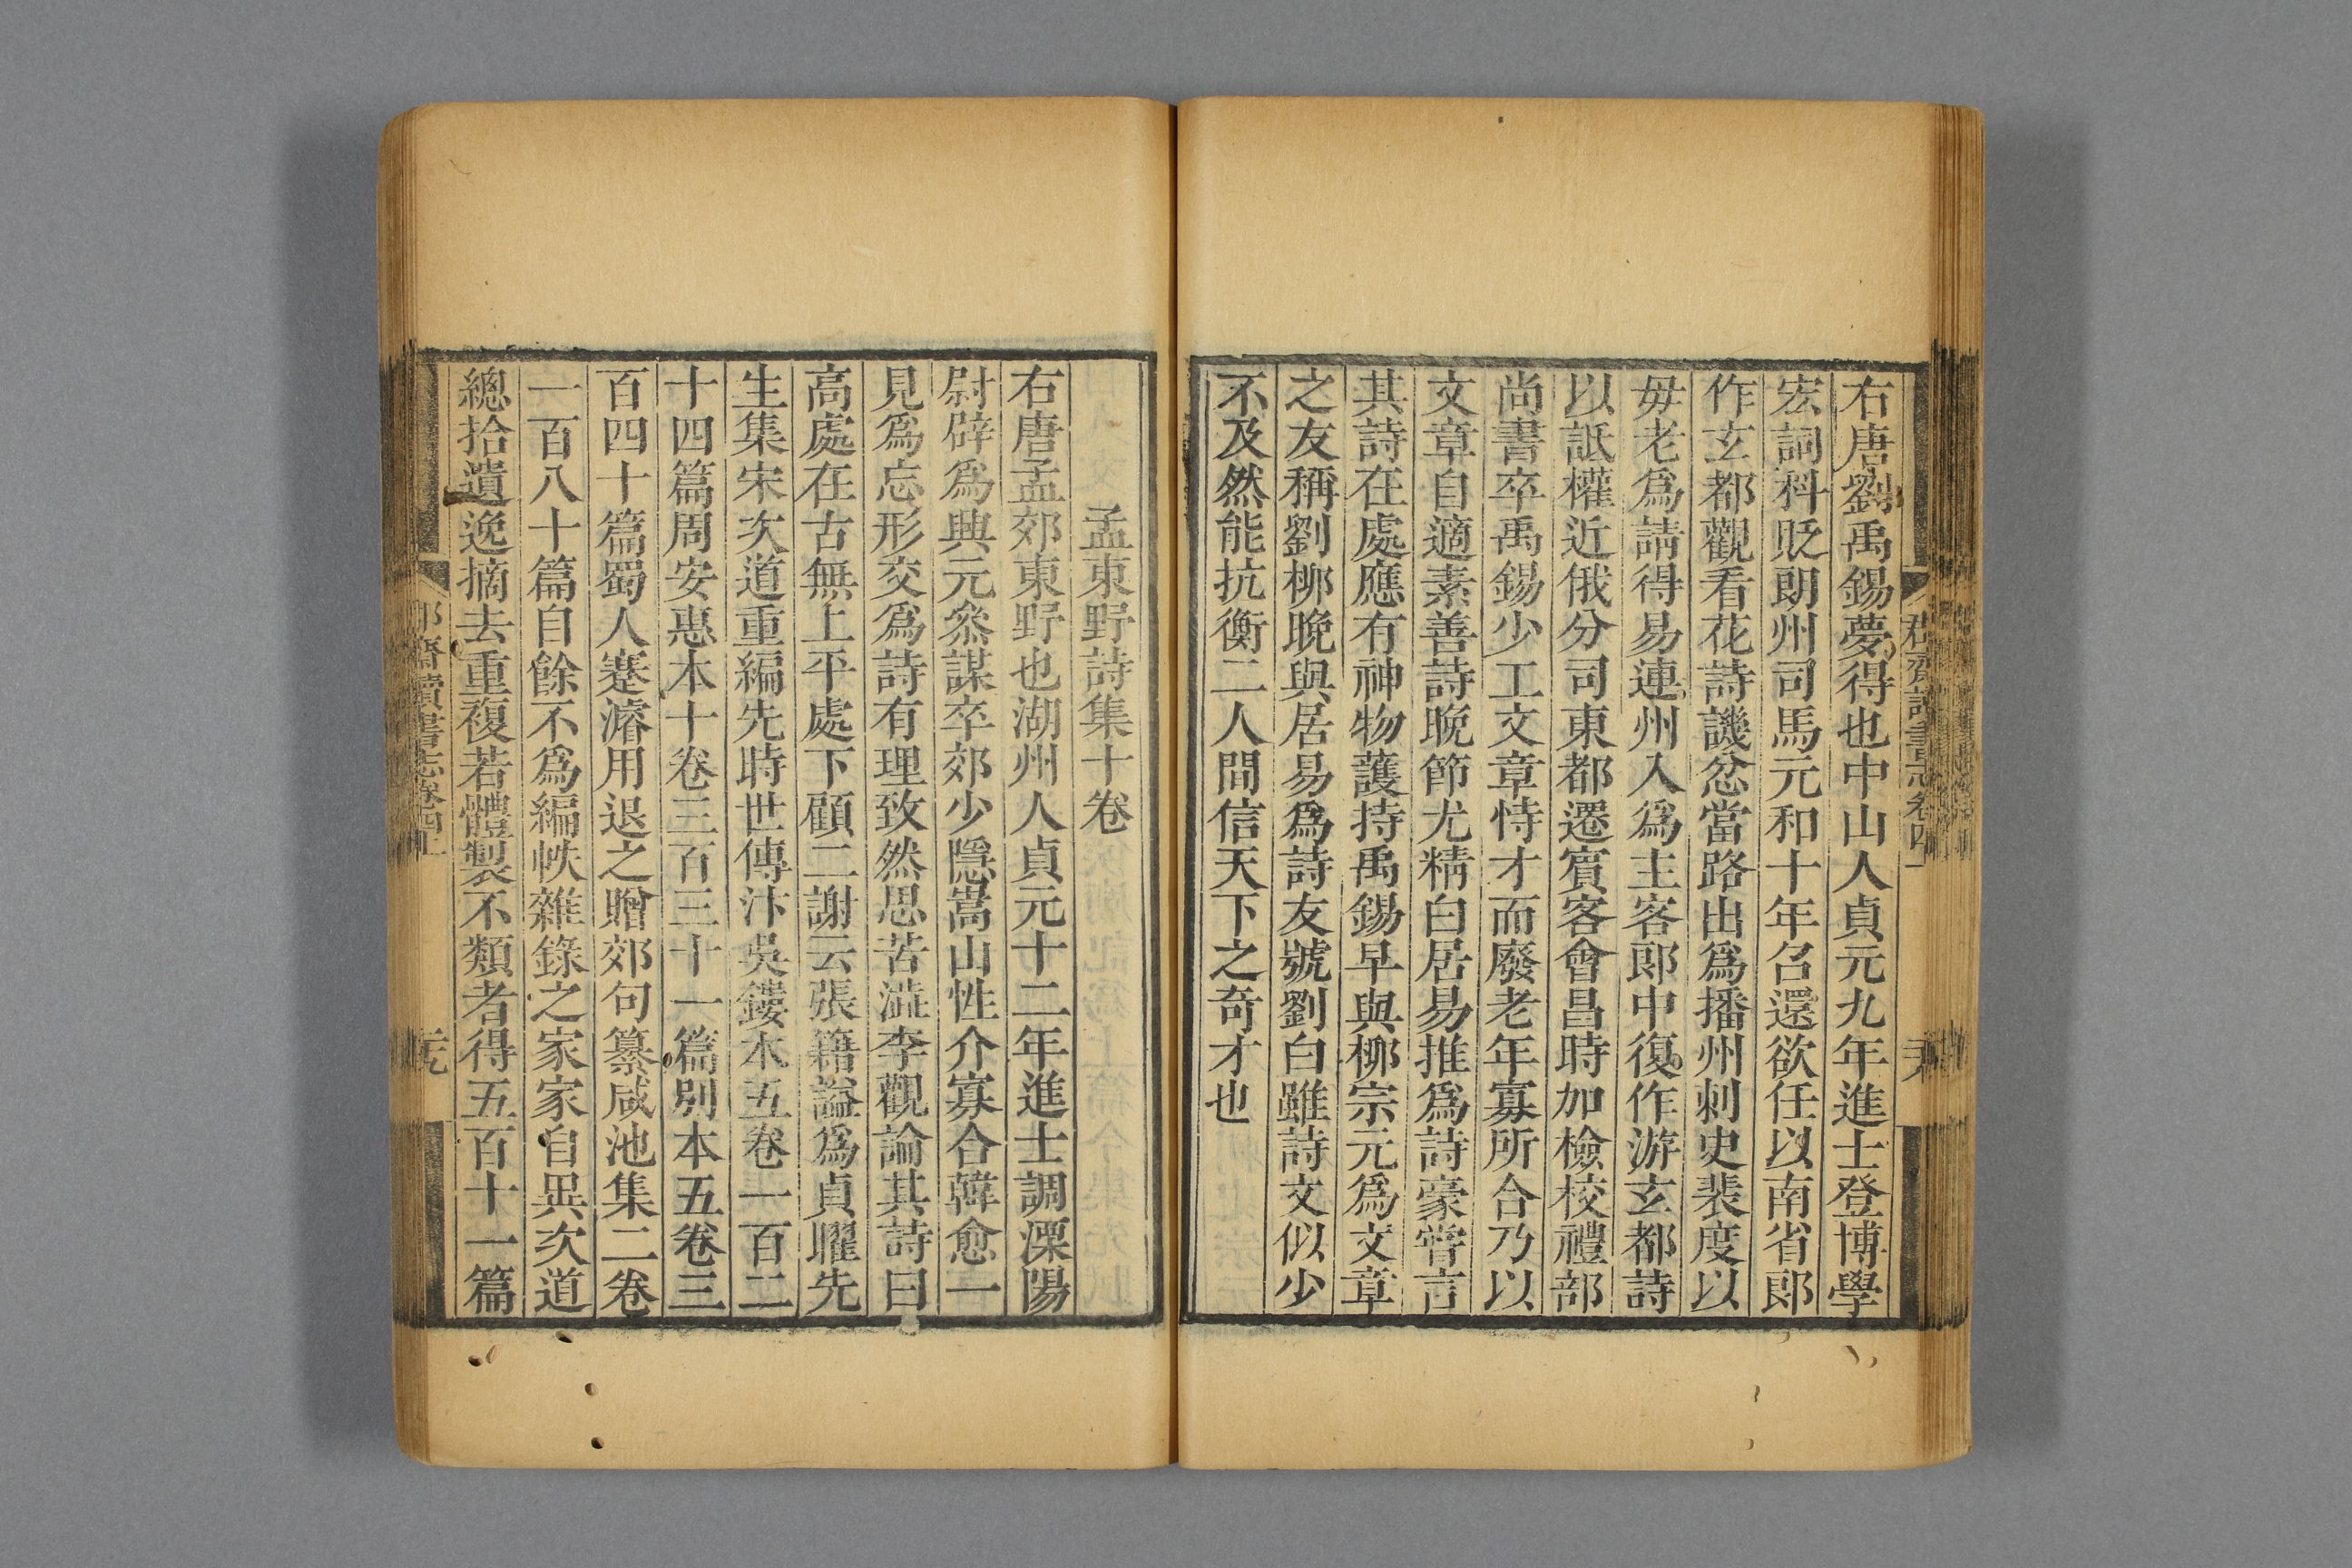 右唐劉禹錫夢得也中山人貞元九年進士登博學
宏詞科貶朗州司馬元和十年召還欲任以南省郎
作玄都觀看花詩譏忿當路出爲播州刺史裴度以
毋老爲請得易連州入爲主客郎中復作游玄都詩
以詆權近俄分司東都遷賓客會昌時加檢校禮部
尚書卒禹錫少工文章恃才而廢老年寡所合乃以
文章自適素善詩晚節尤精白居易推爲詩豪嘗言
其詩在處應有神物護持禹錫早與柳宗元爲文章
之友稱劉柳晚與居易爲詩友號劉白雖詩文似少
不及然能抗衡二人間信天下之奇才也
孟東野詩集十卷
右唐孟郊東野也湖州人貞元十二年進士調溧陽
尉辟爲興元叅謀卒郊少隱嵩山性介寡合韓愈一
見爲忘形交爲詩有理致然思苦澁李觀論其詩曰
高處在古無上平處下顧二謝云張籍謚爲貞曜先
生集宋次道重編先時世傳汴吳鏤本五卷一百二
十四篇周安惠本十卷三百三十一篇別本五卷三
百四十篇蜀人蹇濬用退之贈郊句纂咸池集二卷
一百八十篇自餘不爲編帙雜錄之家家自異次道
總拾遺逸摘去重複若體製不類者得五百十一篇
郡齋讀書志卷四上